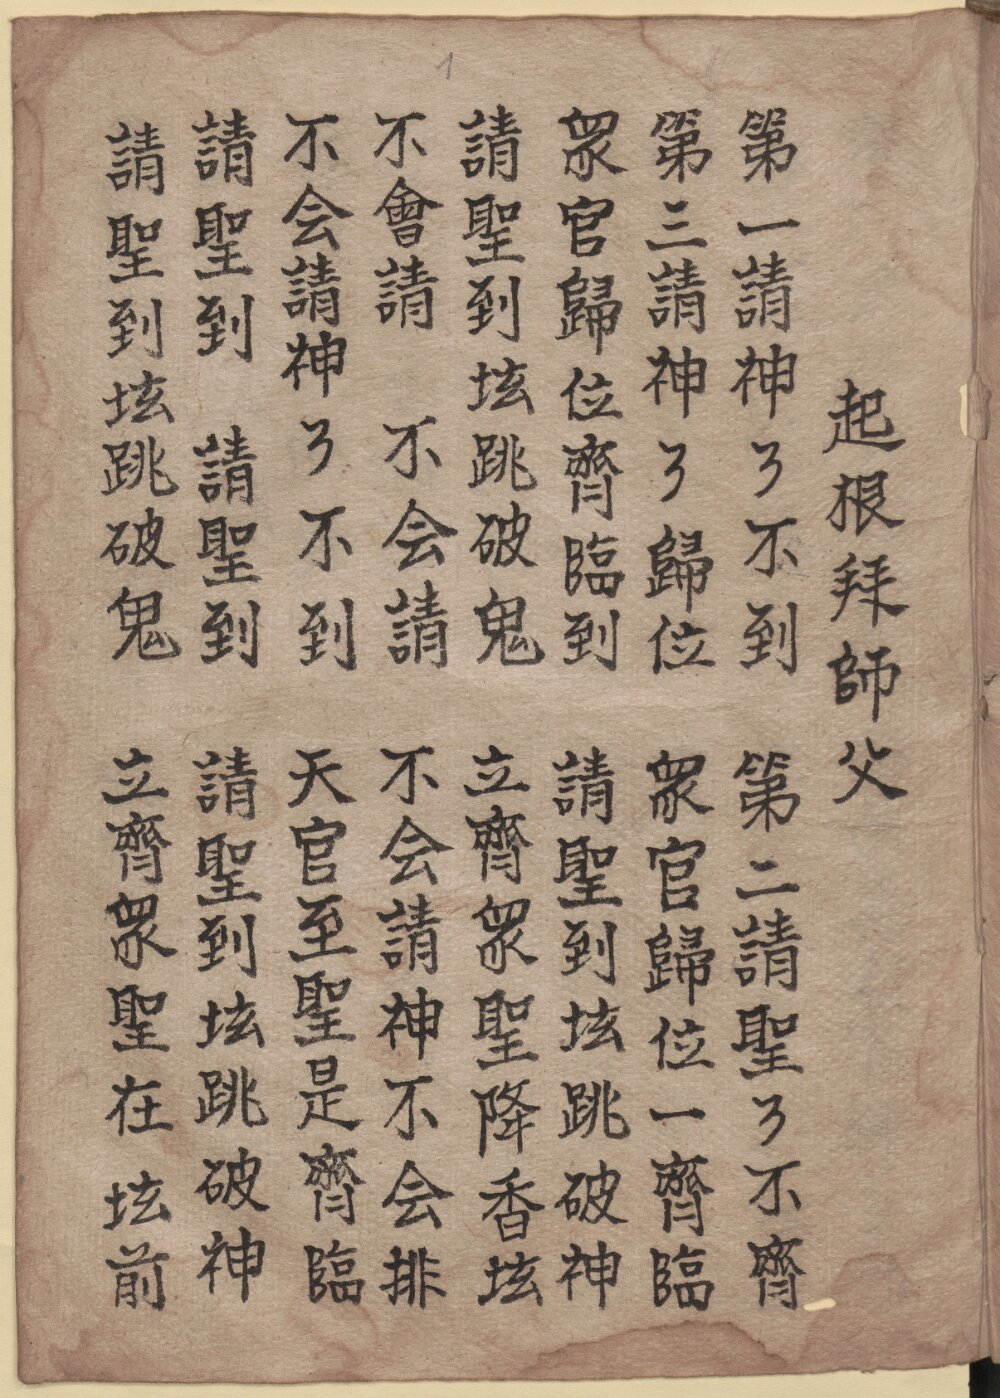 起根拜師父
第一請神了不到 第二請聖了不齊
第三請神了歸位 衆官歸位一齊臨
衆官歸位齊臨到 請聖到坛跳破神
請聖到坛跳破鬼 立齊衆聖降香坛
不會請 不会請 不会請神不会排
不会請神了不到 天官至聖是齊臨
請聖到 請聖到 請聖到坛跳破神
請聖到坛跳破鬼 立齊衆聖在坛前
1